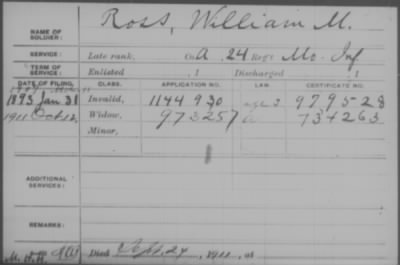 NAME OF SOLDIER: Ross, William M.
SERVICE: Late rank, Co. A, 24 Reg't Mo. Inf
TERM OF SERVICE: Enlisted , 1 Discharged , 1
DATE OF FILING. CLASS. APPLICATION NO. LAW. CERTIFICATE NO.
1893 Jan 31 Invalid, 1144930 979528
1911 Oct 12 Widow, 973257 734263
Minor,
ADDITIONAL SERVICES:
REMARKS:
Died Sept. 24, 1911, at